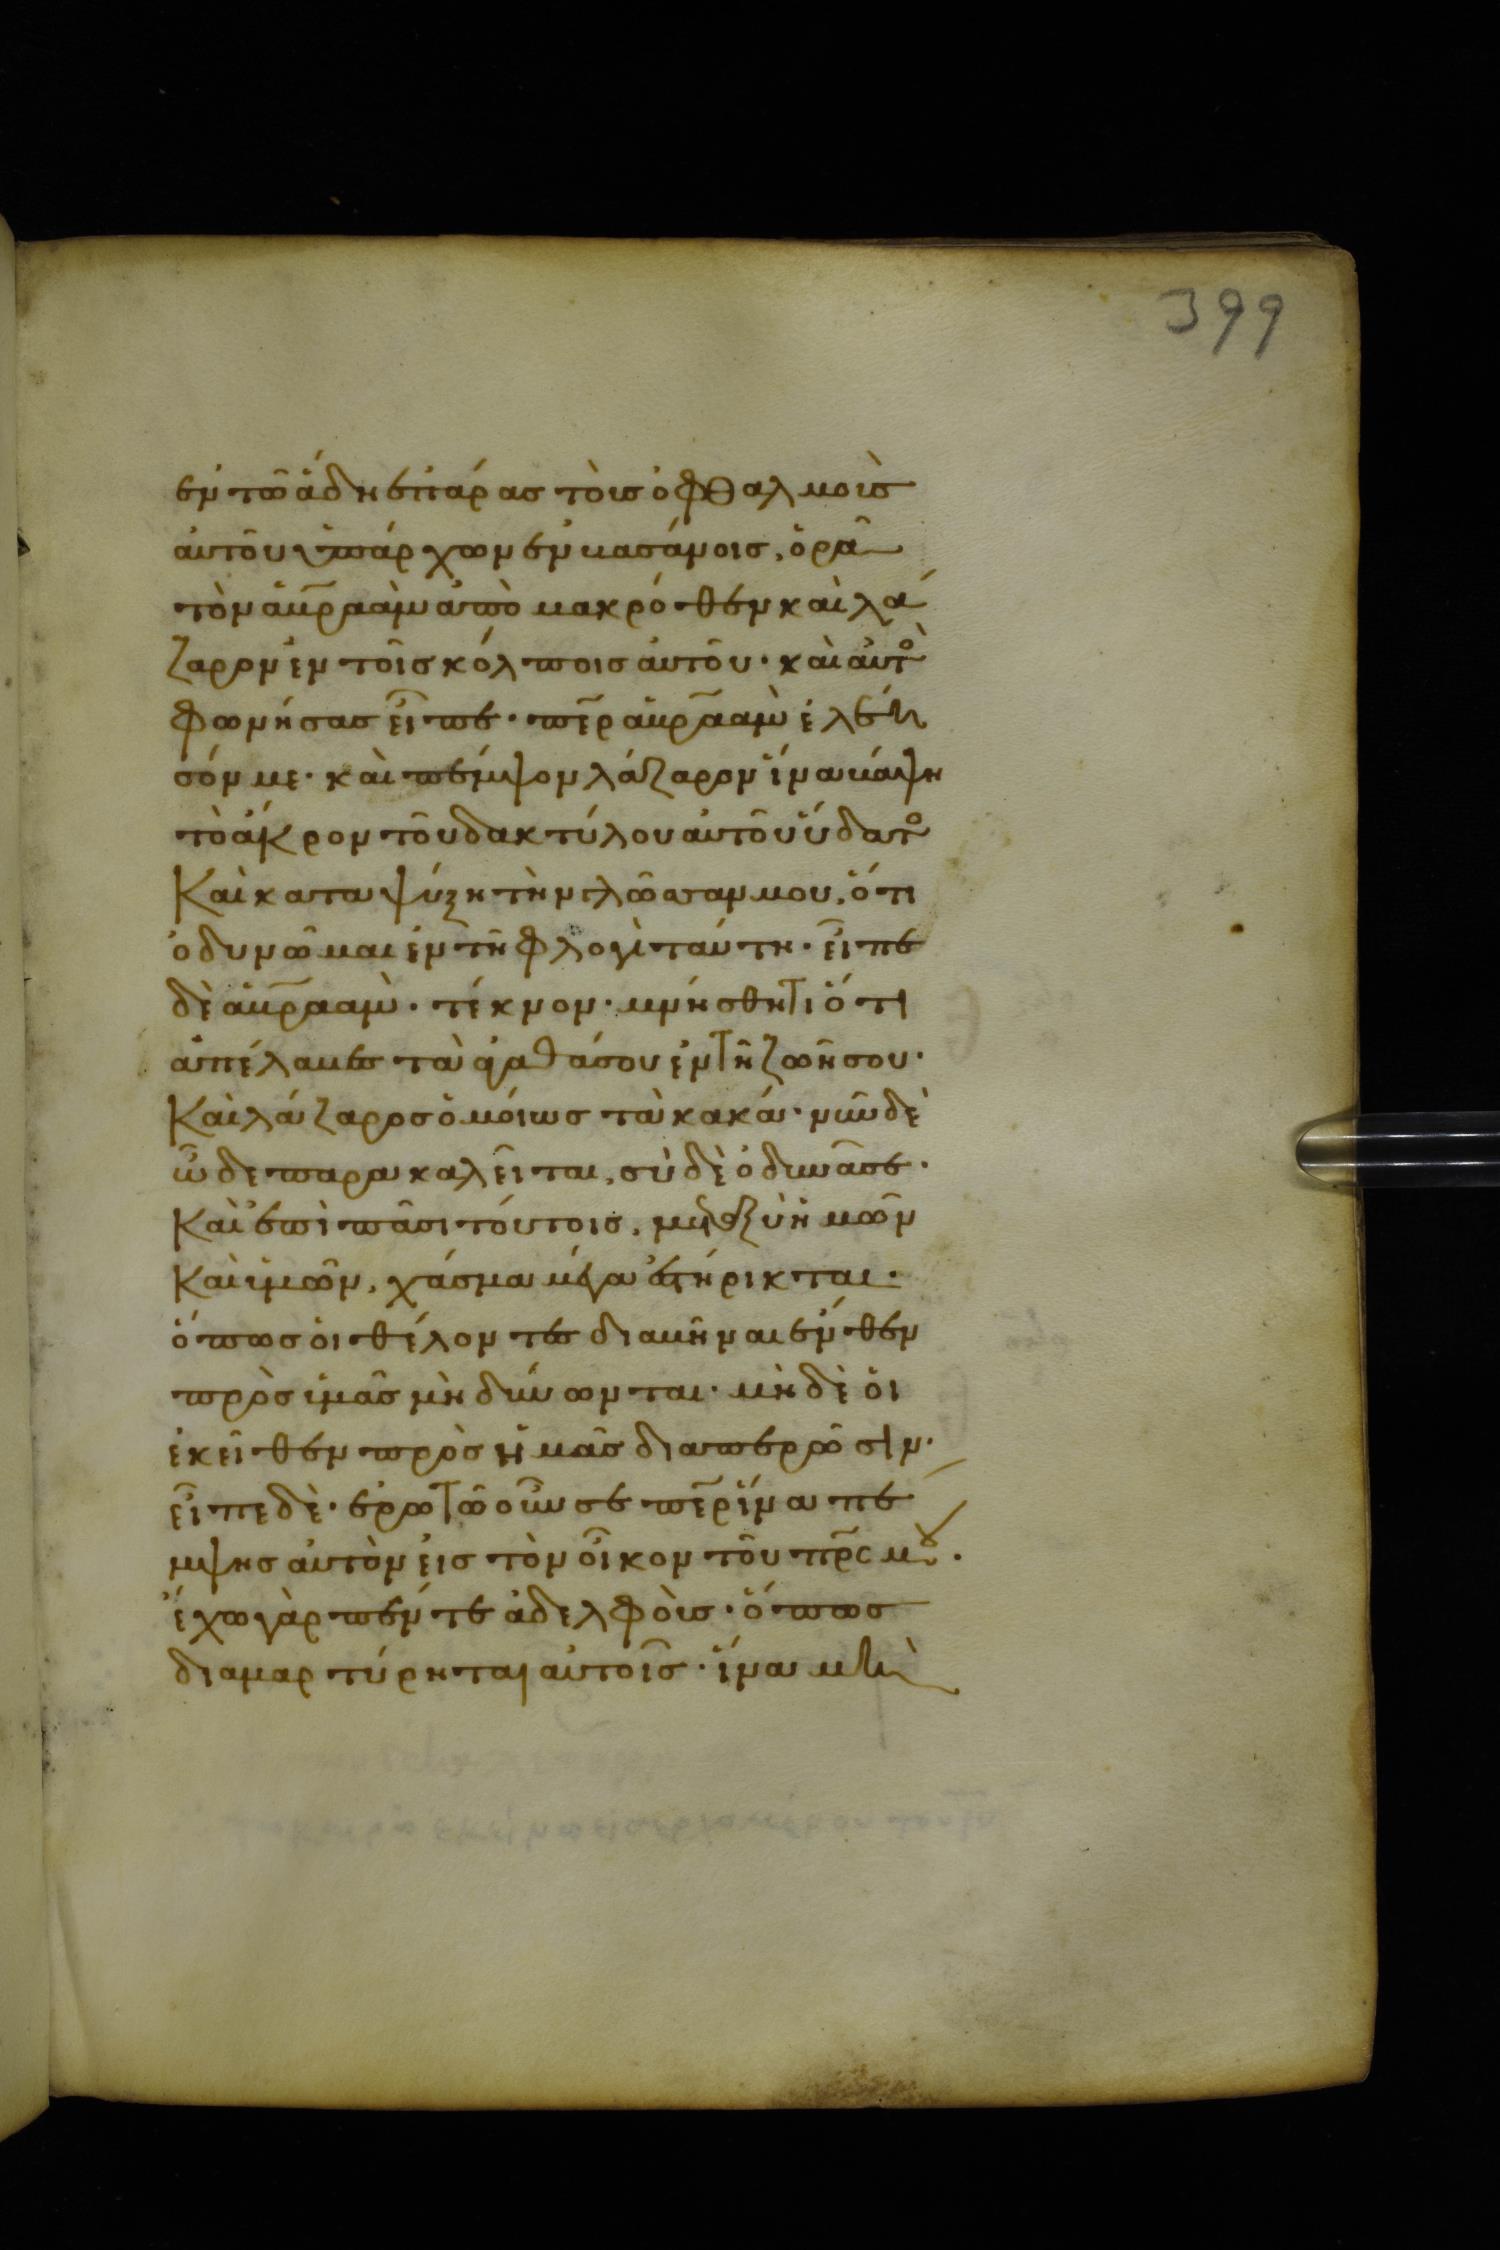 399
ἐν τῶ ἅδη ἐπάρας τοὺς ὀφθαλμοὺς
αὐτοῦ ὑπάρχων ἐν βασάνοις, ὁρᾶ
τὸν ἀβραὰμ ἀπὸ μακρόθεν καὶ λά
ζαρον ἐν τοῖς κόλποις αὐτοῦ· καὶ αὐτὸ
φωνήσας εἶπε· περ ἀβραὰμ ἐλέη
σόν με· καὶ πέμψον λάζαρον ἵνα βάψη
τὸ ἄκρον τοῦ δακτύλου αὐτοῦ ὕδατο
Καὶ καταψύξη τὴν γλῶσσαν μου, ὅτι
ὀδυνῶμαι ἐν τῆ φλογὶ ταύτη· εἶπε
δὲ ἀβραὰμ· τέκνον· μνήσθητι ὅτι
ἀπέλαβες τὰ ἀγαθά σου ἐν τῆ ζωῆ σου·
Καὶ λάζαρος ὁμοίως τὰ κακά· νῦν δὲ
ὧδε παρακαλεῖται, σὺ δὲ ὀδυνᾶσε·
Καὶ ἐπὶ πᾶσι τούτοις, μεταξὺ ἡμῶν
Καὶ ὑμῶν, χάσμα μέγα ἐστήρικται·
ὅπως οἱ θέλοντες διαβῆναι ἔνθεν
πρὸς ὑμᾶς μὴ δύνωνται· μὴ δὲ οἱ
ἐκεῖθεν πρὸς ἡμᾶς διαπερῶσιν·
εἶπε δὲ· ἐρωτῶ οὖν σε περ ἵνα πέ
μψης αὐτὸν εἰς τὸν οἶκον τοῦ πρς μου·
ἔχω γὰρ πέντε ἀδελφοὺς· ὅπως
διαμαρτύρηται αὐτοῖς· ἵνα μὴ